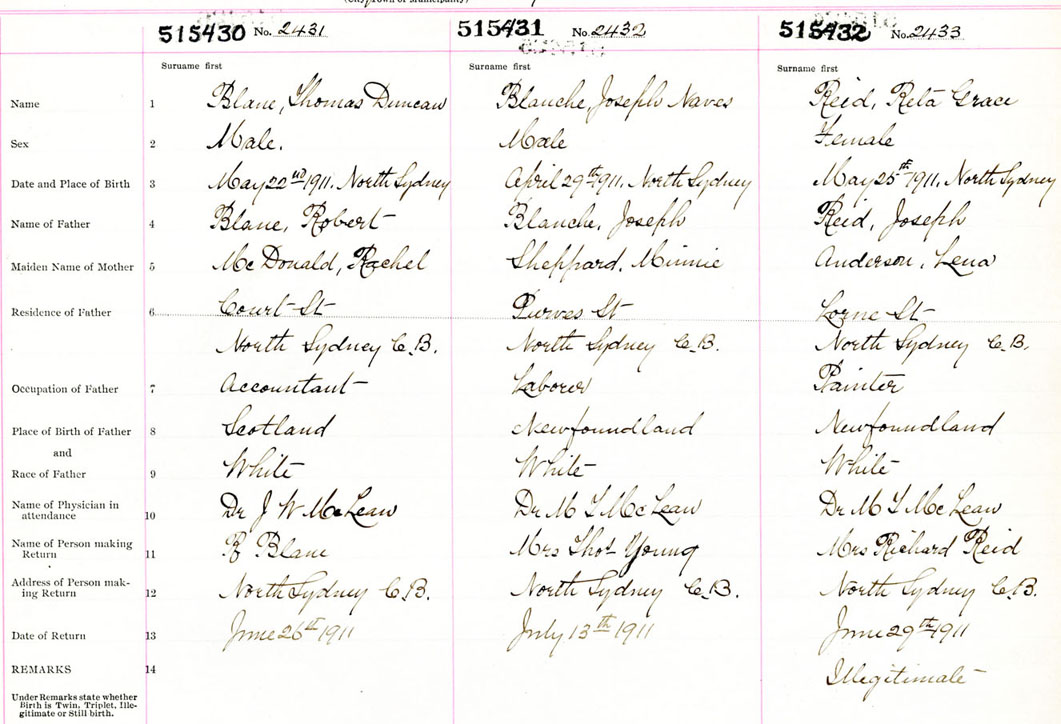 515430 No. 2431 515431 No. 2432 515432 No. 2433
Surname first Surname first Surname first
Name 1 Blane, Thomas Duncan Blanche, Joseph Naves Reid, Reta Grace
Sex 2 Male. Male Female
Date and Place of Birth 3 May 22nd 1911. North Sydney April 29th 1911. North Sydney May 25th 1911. North Sydney
Name of Father 4 Blane, Robert Blanche, Joseph Reid, Joseph
Maiden Name of Mother 5 McDonald, Rachel Sheppard, Minnie Anderson, Lena
Residence of Father 6 Court St Purves St Lorne St
North Sydney C.B. North Sydney C.B. North Sydney C.B.
Occupation of Father 7 Accountant Laborer Painter
Place of Birth of Father 8 Scotland Newfoundland Newfoundland
and
Race of Father 9 White White White
Name of Physician in
attendance 10 Dr J W McLean Dr M T McLean Dr M T McLean
Name of Person making
Return 11 R Blane Mrs Thos Young Mrs Richard Reid
Address of Person mak-
ing Return 12 North Sydney C.B. North Sydney C.B. North Sydney C.B.
Date of Return 13 June 26th 1911 July 13th 1911 June 29th 1911
REMARKS 14 Illegitimate
Under Remarks state whether
Birth is Twin, Triplet, Ille-
gitimate or Still birth.